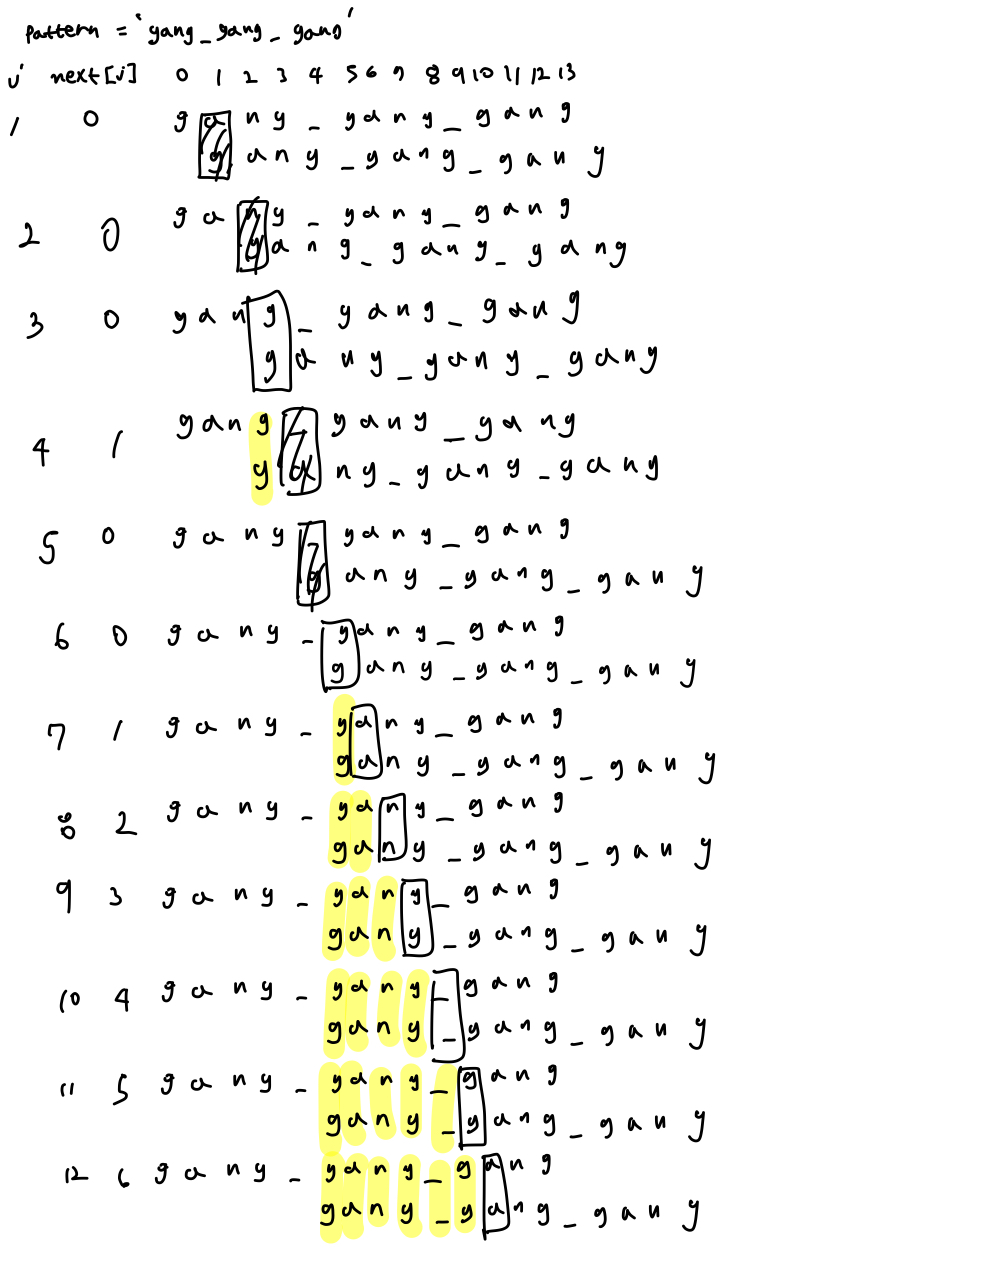 pattern = 'gang_gang_gang'
j next[j] 0 1 2 3 4 5 6 7 8 9 10 11 12 13
1 0 gang_gang_gang
gang_gang_gang
2 0 gang_gang_gang
gang_gang_gang
3 0 gang_gang_gang
gang_gang_gang
4 1 gang_gang_gang
gang_gang_gang
5 0 gang_gang_gang
gang_gang_gang
6 0 gang_gang_gang
gang_gang_gang
7 1 gang_gang_gang
gang_gang_gang
8 2 gang_gang_gang
gang_gang_gang
9 3 gang_gang_gang
gang_gang_gang
10 4 gang_gang_gang
gang_gang_gang
11 5 gang_gang_gang
gang_gang_gang
12 6 gang_gang_gang
gang_gang_gang